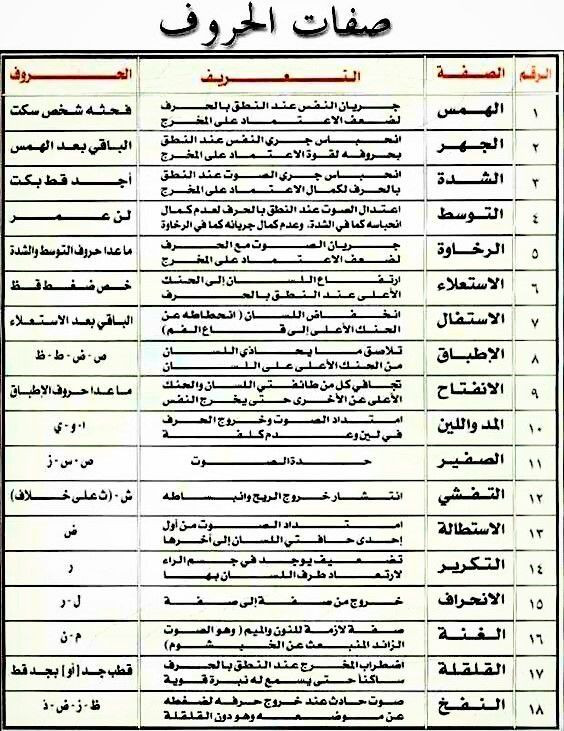 صفات الحروف
الرقم الصفة التعريف الحروف
١ الهمس جريان النفس عند النطق بالحرف لضعف الاعتماد على المخرج فحثه شخص سكت
٢ الجهر انحباس جري النفس عند النطق بحروفه لقوة الاعتماد على المخرج الباقي بعد الهمس
٣ الشدة انحباس جري الصوت عند النطق بالحرف لكمال الاعتماد على المخرج أجد قط بكت
٤ التوسط اعتدال الصوت عند النطق بالحرف لعدم كمال انحباسه كما في الشدة، وعدم كمال جريانه كما في الرخاوة لن عمر
٥ الرخاوة جريان الصوت مع الحرف لضعف الاعتماد على المخرج ما عدا حروف التوسط والشدة
٦ الاستعلاء ارتفاع اللسان إلى الحنك الأعلى عند النطق بالحرف خص ضغط قظ
٧ الاستفال انخفاض اللسان (انحطاطه عن الحنك الأعلى إلى قاع الفم) الباقي بعد الاستعلاء
٨ الإطباق تلاصق ما يحاذي اللسان من الحنك الأعلى على اللسان ص - ض - ط - ظ
٩ الانفتاح تجافي كل من طائفتي اللسان والحنك الأعلى عن الأخرى حتى يخرج النفس ما عدا حروف الإطباق
١٠ المد واللين امتداد الصوت وخروج الحرف في لين وعدم كلفة ا - و - ي
١١ الصفير حدة الصوت ص - س - ز
١٢ التفشي انتشار خروج الريح وانبساطه ش - (ث على خلاف)
١٣ الاستطالة امتداد الصوت من أول إحدى حافتي اللسان إلى أخرها ض
١٤ التكرير تضعيف يوجد في جسم الراء لارتعاد طرف اللسان بها ر
١٥ الانحراف خروج من صفة إلى صفة ل - ر
١٦ الغنة صفة لازمة للنون والميم (وهو الصوت الزائد المنبعث عن الخيشوم) م - ن
١٧ القلقلة اضطراب المخرج عند النطق بالحرف ساكنا حتى يسمع له نبرة قوية قطب جد [أو] بجد قط
١٨ النفخ صوت حادث عند خروج حرفه لضغطه عن موضعه وهو دون القلقلة ظ - ز - ض - ذ